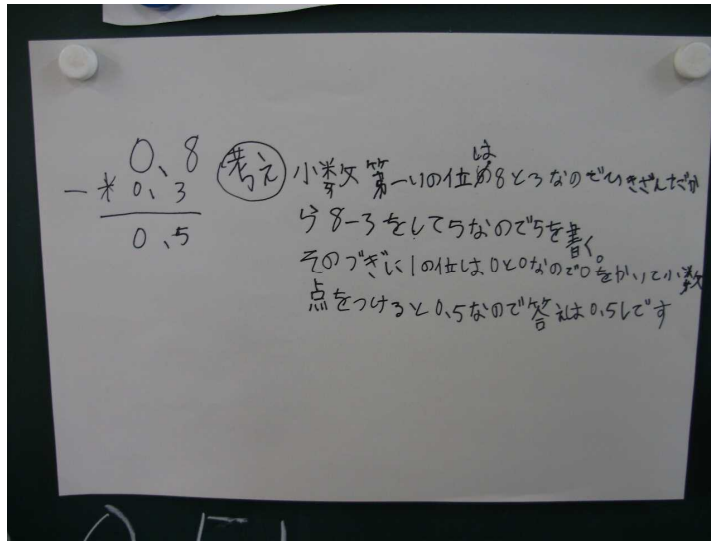 0.8
- 0.3
0.5
考え
小数第一の位は8と3なのでひきざんだか
ら8-3をして5なので5を書く。
そのつぎに1の位は0と0なので0をかいて小数
点をつけると0.5なので答えは0.5Lです